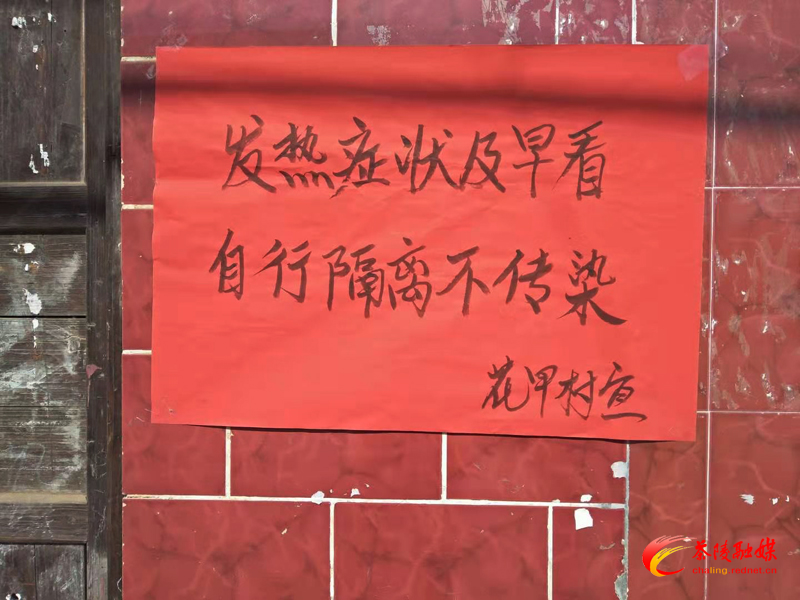 发热症状及早看
自行隔离不传染
花甲村宣
茶陵融媒
chaling.rednet.cn